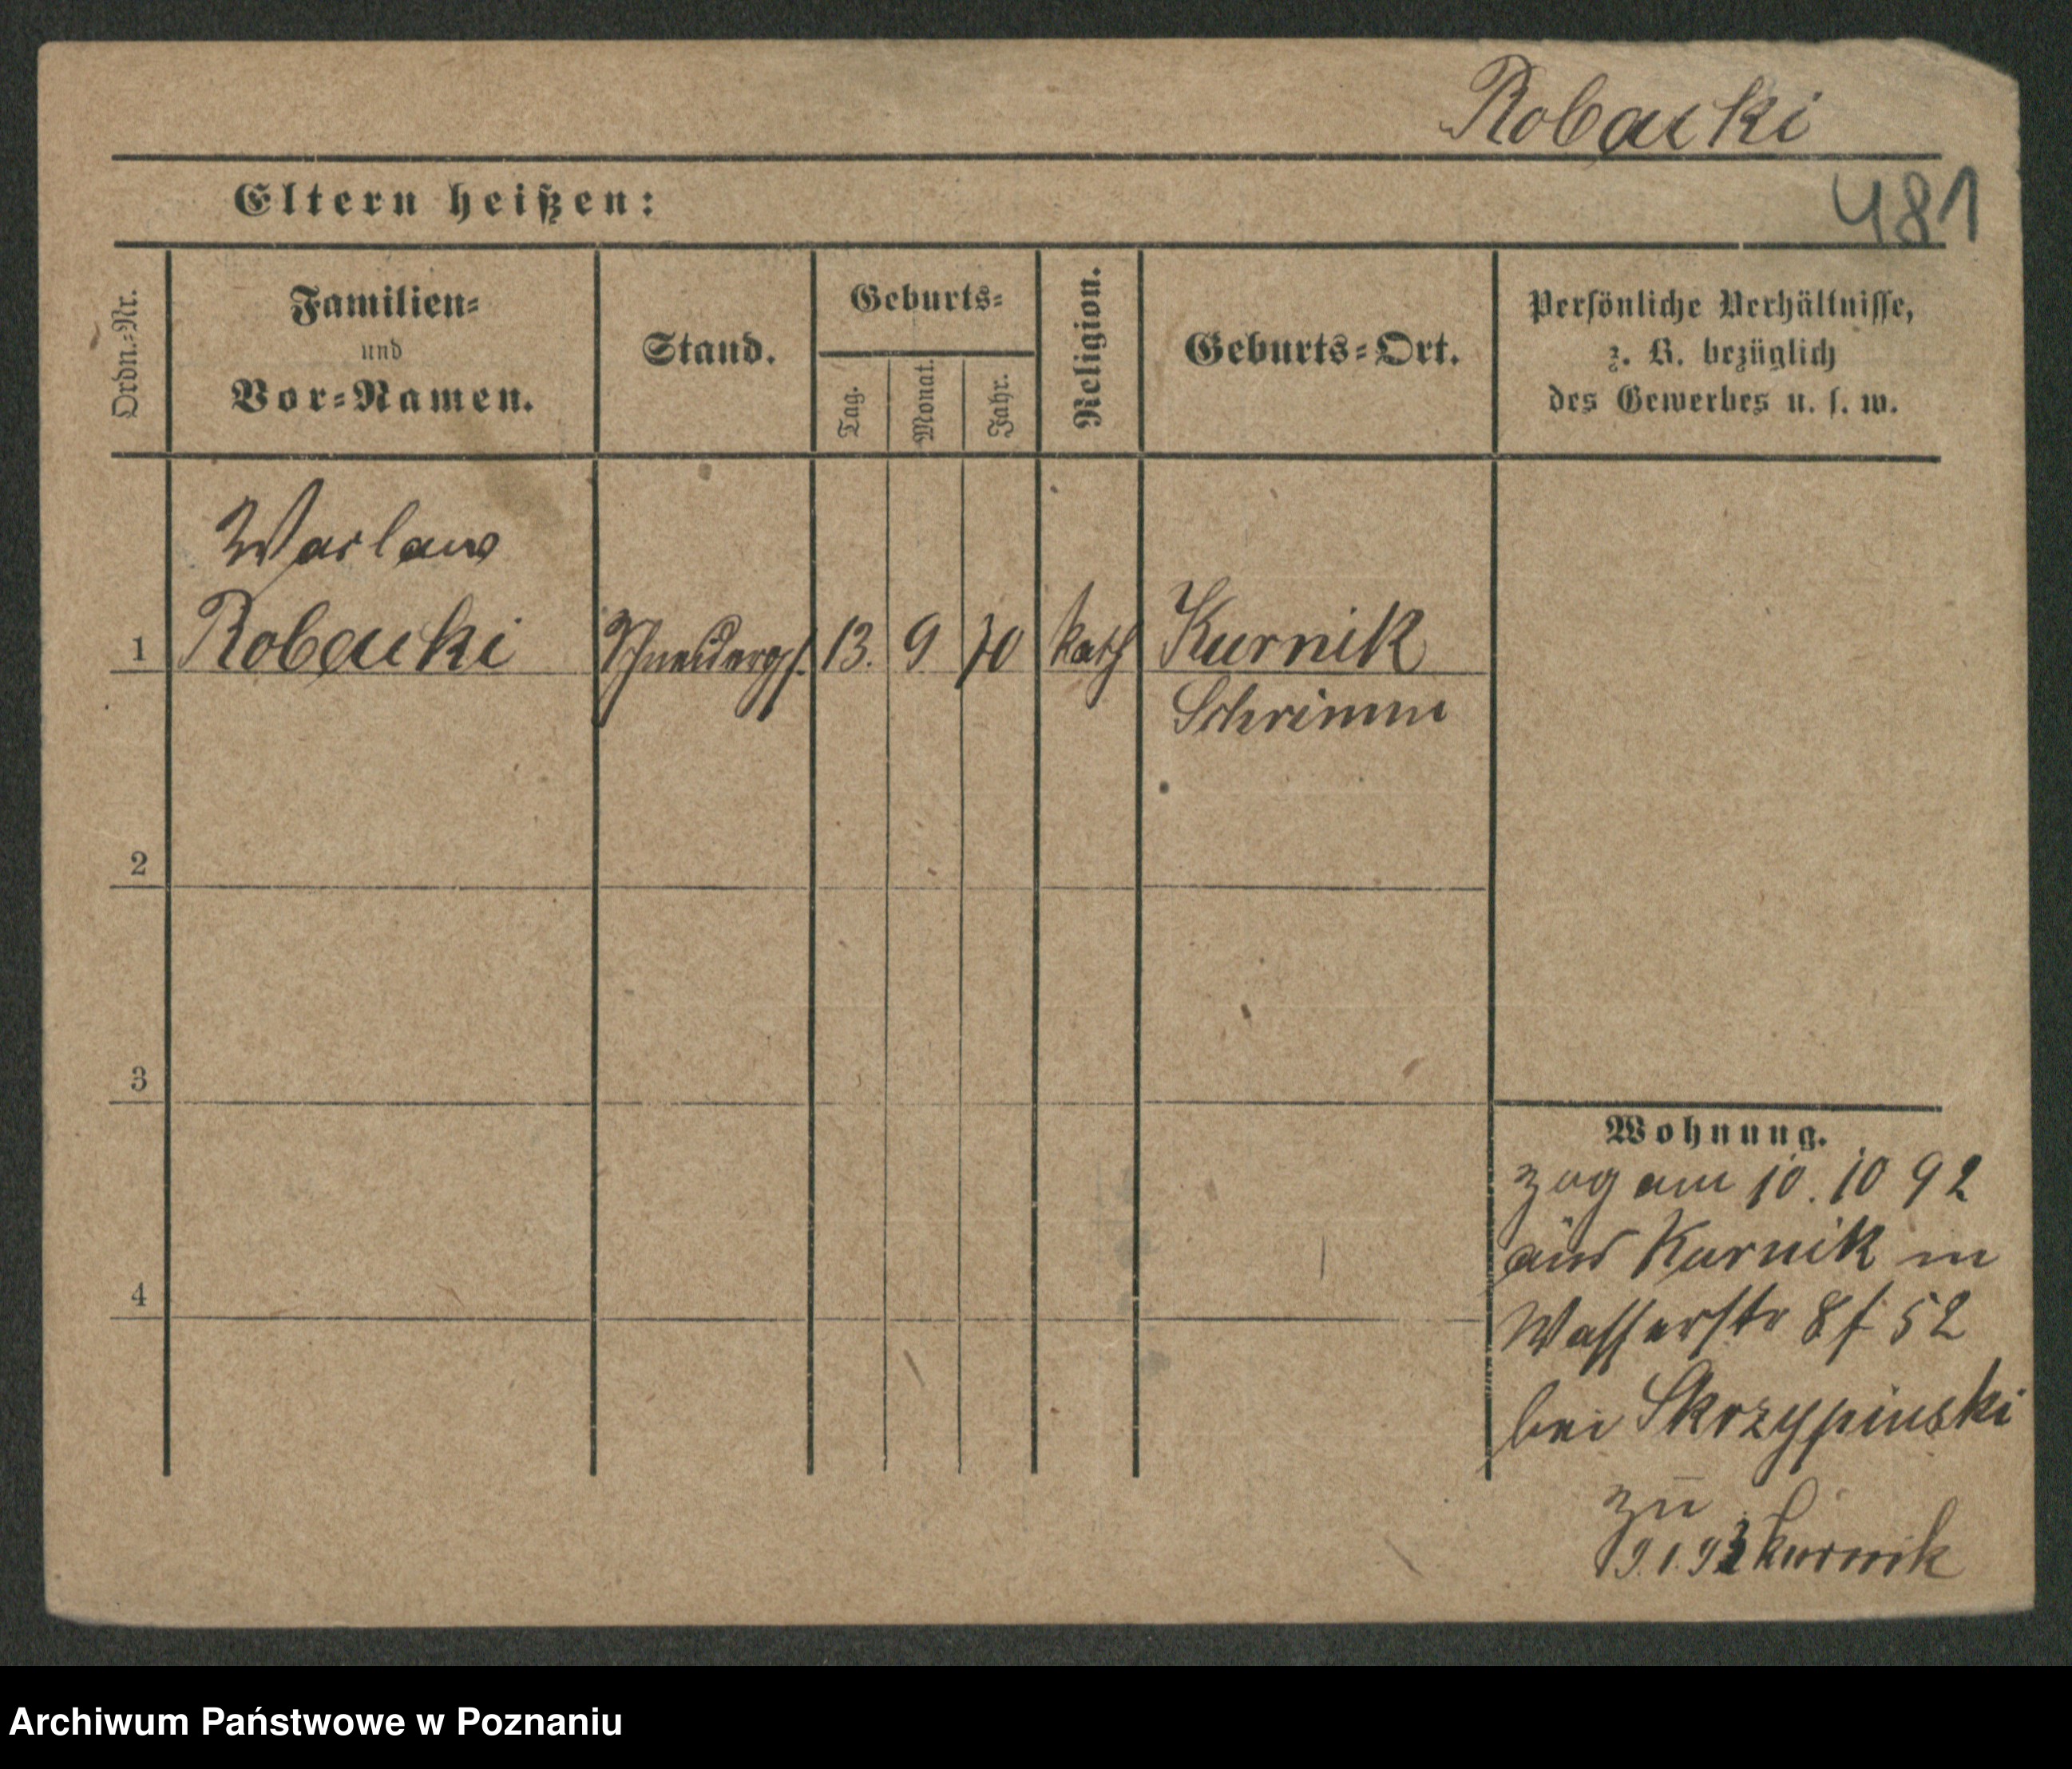 Robacki
Eltern heißen:
481
Ordn.-Nr.
Familien-
und
Vor-Namen.
Stand.
Geburts-
Tag.
Monat.
Jahr.
Religion.
Geburts-Ort.
Persönliche Verhältnisse,
z. B. bezüglich
des Gewerbes u. s. w.
Waclaw
1 Robacki Schneiderges. 13. 9 70 kath Kurnik
Schrimm
2
3
4
Wohnung.
zog am 10. 10 92
aus Kurnik in
Wasserstr 8/ 52
bei Skrzypinski
zu
9.1.93 Kurnik
Archiwum Państwowe w Poznaniu